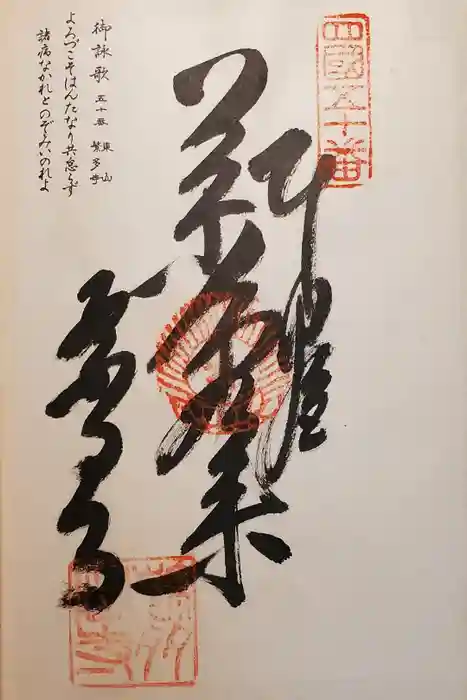 四國五十番
薬師如来
繁多寺
御詠歌 五十番 東山 繁多寺
よろづこそはんたなり共怠らず
諸病なかれとのぞみいのれよ